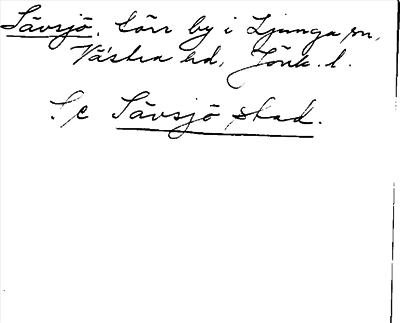 Sävsjö. Förr by i Ljunga sn,
Västra hd, Jönk. l.
S/e Sävsjö stad.